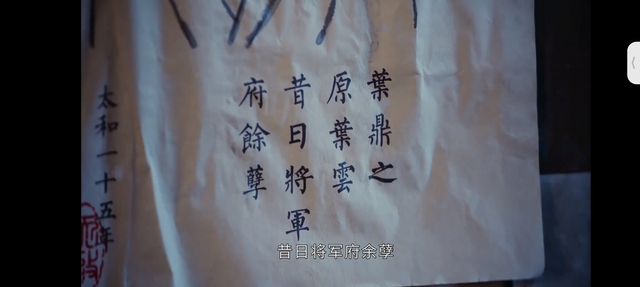 葉鼎之
原葉雲
昔日將軍
府餘孽
太和一十五年
昔日将军府余孽